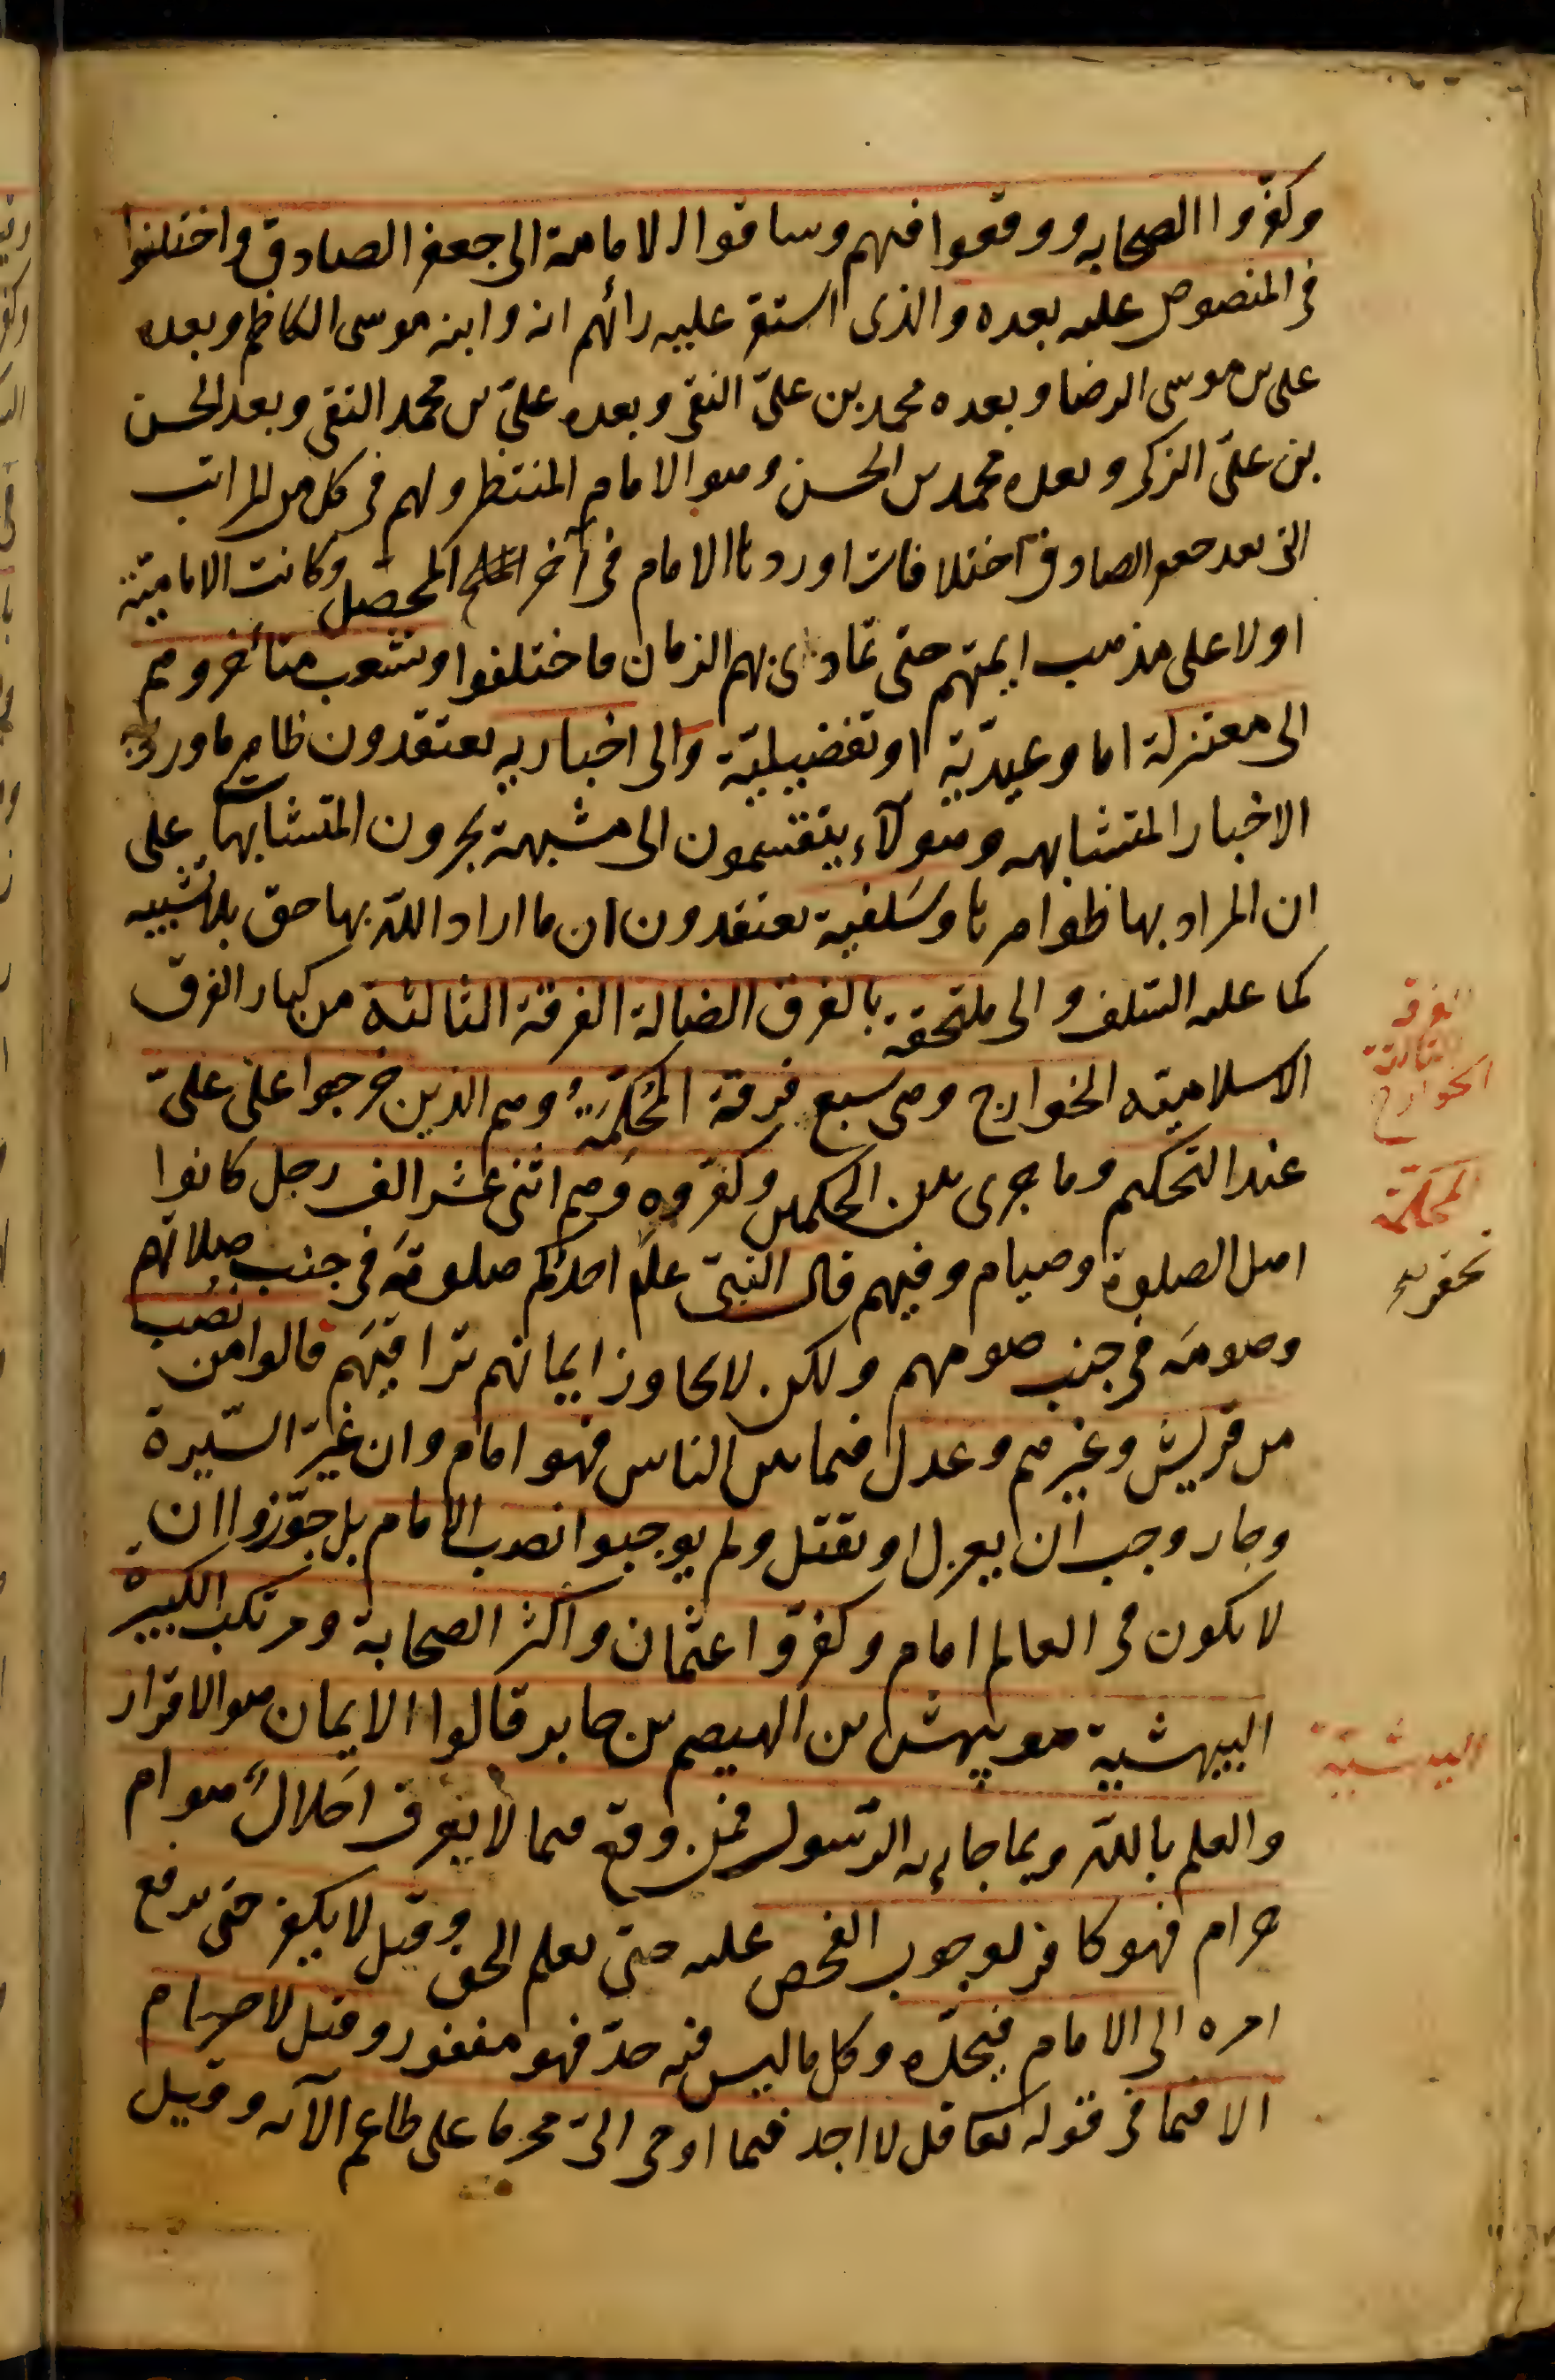 وكفّروا الصحابه ووقعوا فيهم وساقوا الامامة الى جعفر الصادق واختلفوا
فى المنصوص عليه بعده والذى استقر عليه رائهم انه وابنه موسى الكاظم وبعده
على بن موسى الرضا وبعده محمد بن علىّ التقى وبعده علىّ بن محمد النقى وبعد الحسن
بن علىّ الزكى وبعده محمد بن الحسن وهو الامام المنتظر ولهم فى كل من المراتب
التى بعد جعفر الصادق اختلافات اوردها الامام فى آخر المحصل وكانت الاماميّة
اولا على مذهب ايمتهم حتى تمادى بهم الزمان فاختلفوا وتشعب متأخروهم
الى معتزلة اما وعيديّة او تفضيليّة والى اخباريه يعتقدون ظاهر ما ورد به
الاخبار المتشابهه وهولآء يتقسمون الى مشبهة يجرون المتشابها على
ان المراد بها ظواهرها وسَلفية يعتقدون ان ما اراد اللّه بها حق بلا تشبيه
كما عليه السّلف والى ملتحقة بالفرق الضالة الفرقة الثالثة من كبار الفرق
الاسلاميّه الخوارج وهى سبع فرقة المُحَكِّمَةُ وهم الذين خرجوا على علىّ
عند التحكيم وما جرى بين الحكمين وكفّروه وهم اثنى عشر الف رجل كانوا
اهل الصلوة وصيام وفيهم قال النبىّ علم احدكم صلوته فى جنب صلاتهم
وصومَه فى جنب صومهم ولكن لا يجاوز ايمانهم تراقيَهم قالوا من نصب
من قريش وغيرهم وعدل فيما بين الناس فهو امام وان غيّر السّيرة
وجار وجب ان يعزل او يقتل ولم يوجبوا نصب الامام بل جوّزوا ان
لا يكون فى العالم امام وكفّروا عثمان واكثر الصحابة ومرتكب الكبيرة
البيهشية هو بيهش بن الهيصم بن جابر قالوا الايمان هو الاقرار
والعلم باللّه وبما جاء به الرّسول فمن وقع فيما لا يعرف احَلالٌ هو ام
حرام فهو كافر لوجوب الفحص عليه حتى يعلم الحق وقيل لا يكفر حتى يرفع
امره الى الامام فيحدّه وكل ما ليس فيه حدّ فهو مغفور وقيل لا حرام
الا فيما فى قوله تعا قل لا اجد فيما اوحى الىّ محرما على طاعم الآيه وقيل
الفرقة
الثالثة
الخوارج
المحكمة
البيهشية